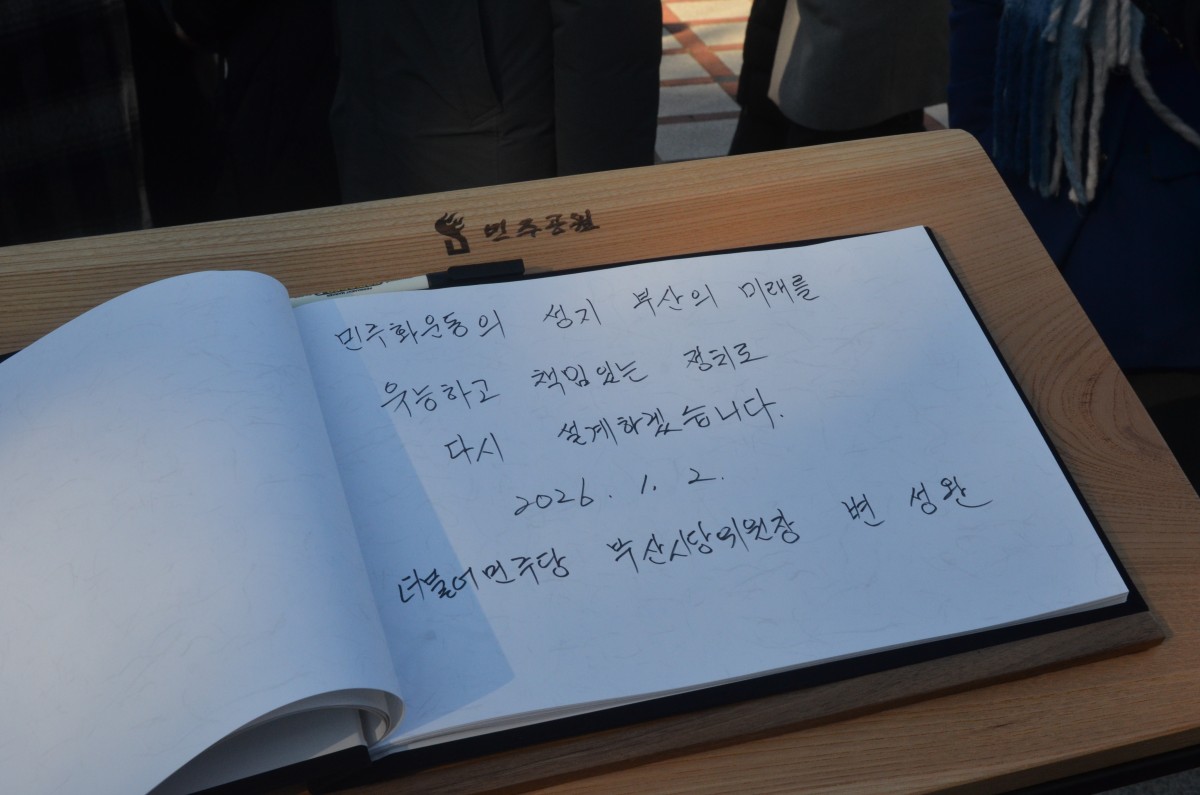 민주공원
민주화운동의 성지 부산의 미래를
유능하고 책임있는 정치로
다시 설계하겠습니다.
2026. 1. 2.
더불어민주당 부산시당위원장 변성완